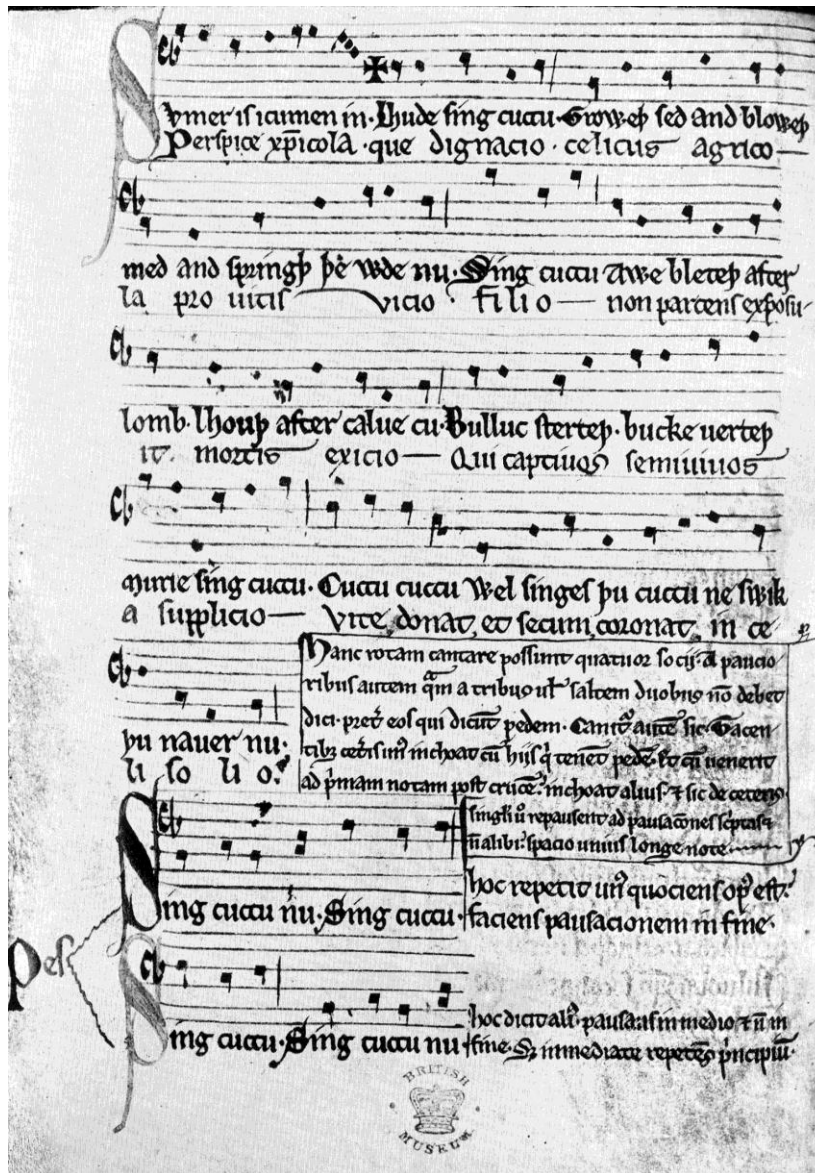 Sumer is icumen in. Lhude sing cuccu. Groweþ sed and bloweþ
Perspice xp̄icola. que dignacio. celicus agrico
med and springþ þe wde nu. Sing cuccu Awe bleteþ after
la pro uitis vicio filio non parcens exposu
lomb. lhouþ after calue cu. Bulluc sterteþ. bucke uerteþ
it mortis exicio Qui captiuos semiuiuos
murie sing cuccu. Cuccu cuccu Wel singes þu cuccu ne swik
a supplicio vite donat, et secum coronat, in ce
þu nauer nu.
li so li o.
Hanc rotam cantare possunt quatuor socij. A paucio
ribus autem qͣm a tribus ul̕ saltem duobus nō debet
dici. pret̕ eos qui dicūt pedem. Canit᷒ autē sic. Tacen
tibꝫ cet̕is un᷒ inchoat cū hijs q̇ tenēt pedē. Et cū uenerit
ad p̓mam notam post crucē. inchoat alius. ⁊ sic de ceteris
singl̕i u̕ repausent ad pausac̄ones sc̓ptas ⁊
n̄ alibi. spacio unius longe note
Sing cuccu nu. Sing cuccu.
hoc repetit un᷒ quociens op᷒ est.
faciens pausacionem in fine.
Pes
Sing cuccu. Sing cuccu nu
hoc dicit ali᷒. pausans in medio ⁊ n̄ in
fine. Sꝫ inmediate repetēs p̓ncipiū.
BRITISH
MUSEUM